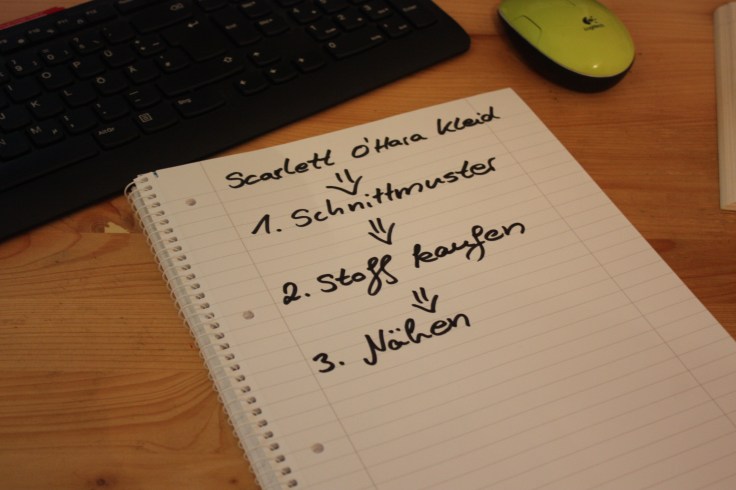 Scarlett O'Hara Kleid
⇓
1. Schnittmuster
⇓
2. Stoff kaufen
⇓
3. Nähen
Logitech